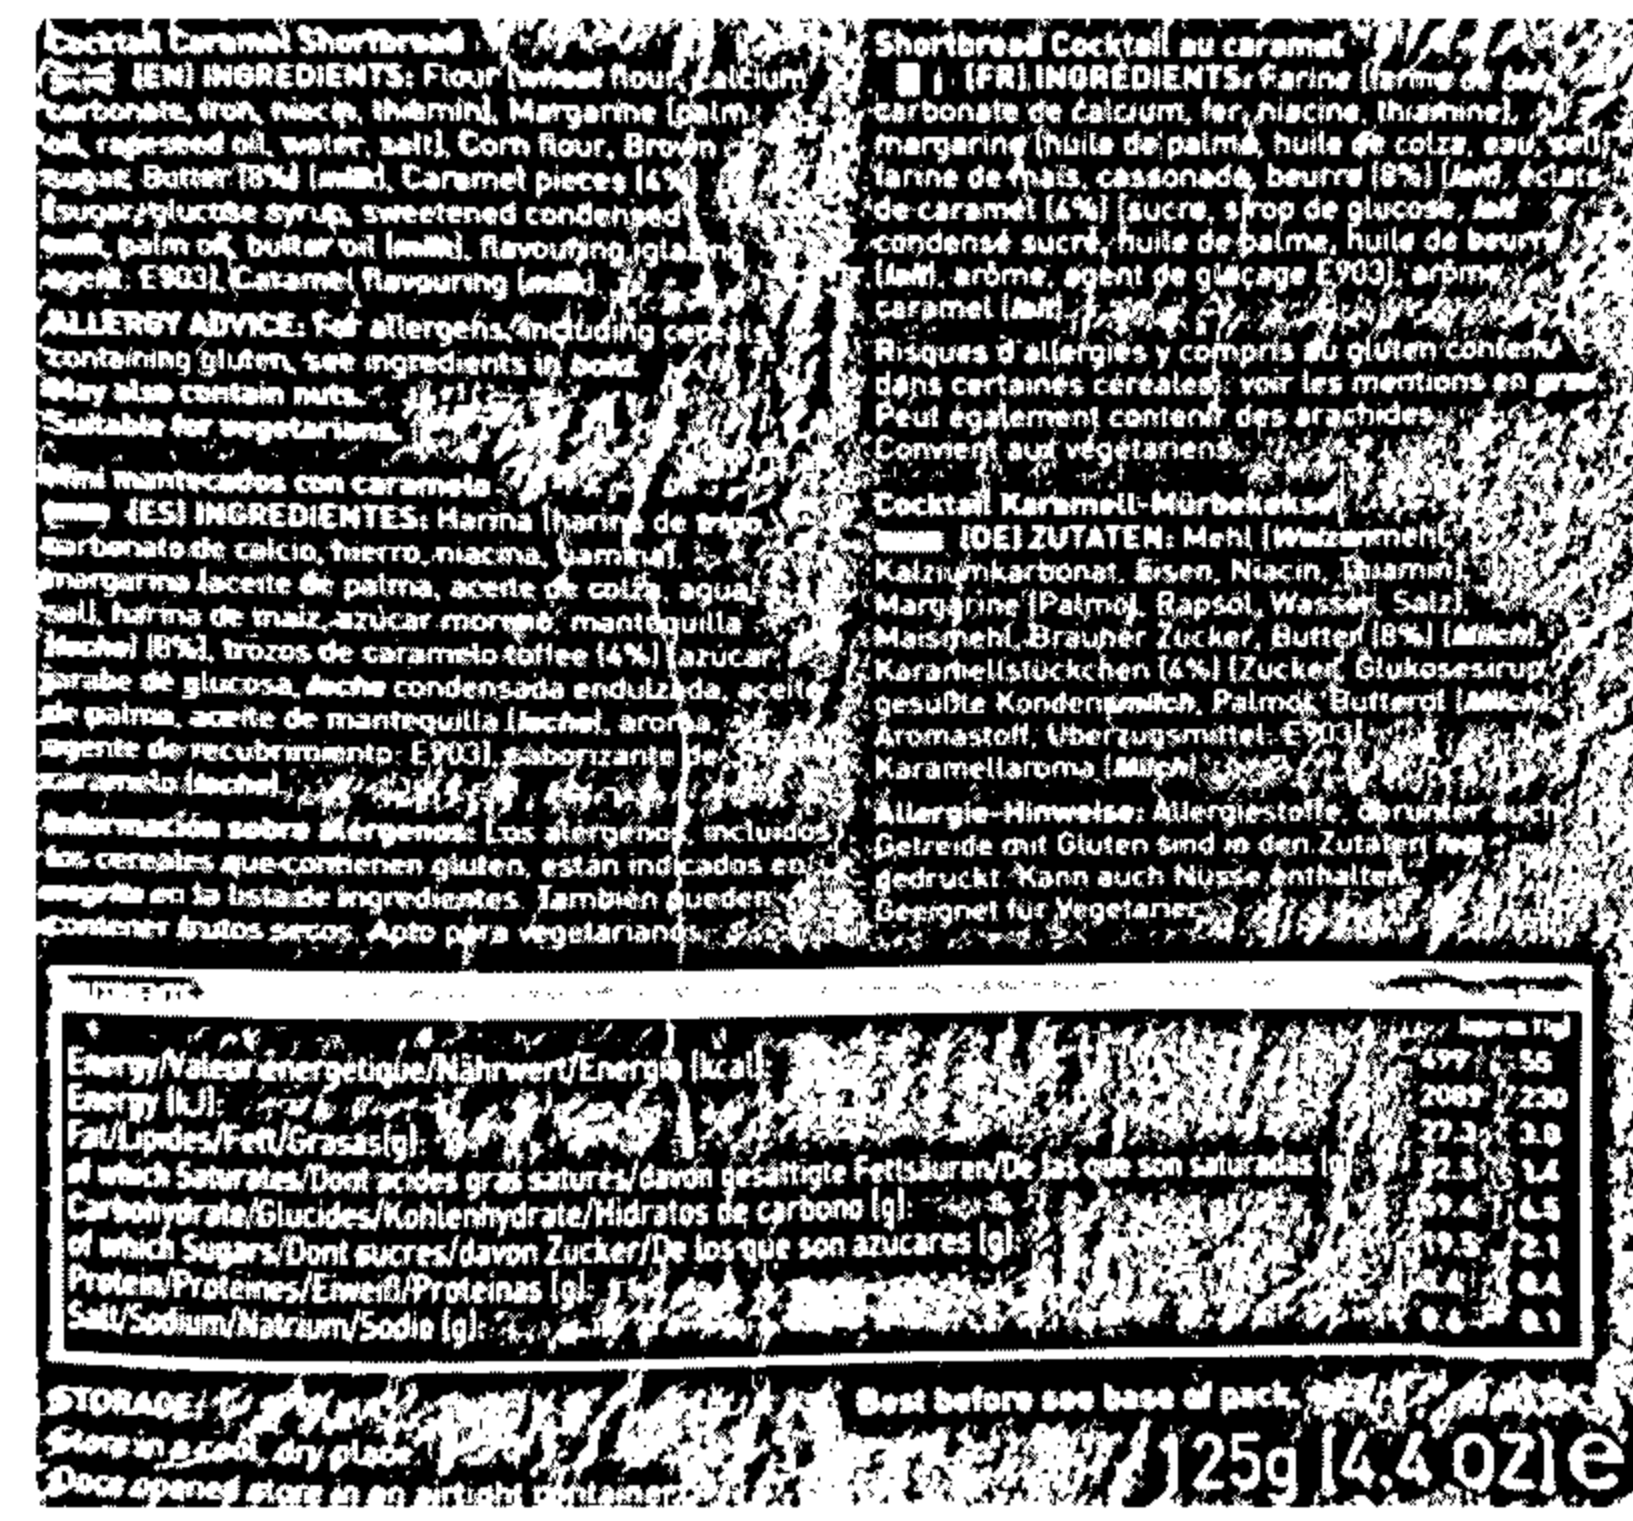 Cocktail Caramel Shortbread
(EN) INGREDIENTS: Flour (wheat flour, calcium
carbonate, iron, niacin, thiamin), Margarine (palm
oil, rapeseed oil, water, salt), Corn flour, Brown
sugar, Butter (8%) (milk), Caramel pieces (4%)
(sugar, glucose syrup, sweetened condensed
milk, palm oil, butter oil (milk), flavouring, glazing
agent: E903), Caramel flavouring (milk).
ALLERGY ADVICE: For allergens, including cereals
containing gluten, see ingredients in bold.
May also contain nuts.
Suitable for vegetarians.
Mini mantecados con caramelo
(ES) INGREDIENTES: Harina (harina de trigo,
carbonato de calcio, hierro, niacina, tiamina),
margarina (aceite de palma, aceite de colza, agua,
sal), harina de maiz, azúcar moreno, mantequilla
(leche) (8%), trozos de caramelo toffee (4%) (azúcar,
jarabe de glucosa, leche condensada endulzada, aceite
de palma, aceite de mantequilla (leche), aroma,
agente de recubrimiento: E903), saborizante de
caramelo (leche).
Información sobre alérgenos: Los alérgenos, incluidos
los cereales que contienen gluten, están indicados en
negrita en la lista de ingredientes. También pueden
contener frutos secos. Apto para vegetarianos.
Shortbread Cocktail au caramel
(FR) INGREDIENTS: Farine (farine de blé,
carbonate de calcium, fer, niacine, thiamine),
margarine (huile de palme, huile de colza, eau, sel),
farine de maïs, cassonade, beurre (8%) (lait), éclats
de caramel (4%) (sucre, sirop de glucose, lait
condensé sucré, huile de palme, huile de beurre
(lait), arôme, agent de glaçage E903), arôme
caramel (lait).
Risques d'allergies y compris au gluten contenu
dans certaines céréales: voir les mentions en gras.
Peut également contenir des arachides.
Convient aux végetariens.
Cocktail Karamell-Mürbekekse
(DE) ZUTATEN: Mehl (Weizenmehl,
Kalziumkarbonat, Eisen, Niacin, Thiamin),
Margarine (Palmöl, Rapsöl, Wasser, Salz),
Maismehl, Brauner Zucker, Butter (8%) (Milch),
Karamellstückchen (4%) (Zucker, Glukosesirup,
gesüßte Kondensmilch, Palmöl, Butteröl (Milch),
Aromastoff, Überzugsmittel: E903),
Karamellaroma (Milch)
Allergie-Hinweise: Allergiestoffe, darunter auch
Getreide mit Gluten sind in den Zutaten fett
gedruckt. Kann auch Nüsse enthalten.
Geeignet für Vegetarier.
Energy/Valeur énergetique/Nährwert/Energia (kcal): 497 55
Energy (kJ): 2089 230
Fat/Lipides/Fett/Grasas(g): 27.3 3.0
of which Saturates/Dont acides gras saturés/davon gesättigte Fettsäuren/De las que son saturadas (g): 12.5 1.4
Carbohydrate/Glucides/Kohlenhydrate/Hidratos de carbono (g): 59.4 6.5
of which Sugars/Dont sucres/davon Zucker/De los que son azucares (g): 19.5 2.1
Protein/Protéines/Eiweiß/Proteínas (g): 0.4
Salt/Sodium/Natrium/Sodio (g): 0.6 0.1
STORAGE:
Store in a cool, dry place.
Once opened store in an airtight container.
Best before see base of pack.
125g (4.4 OZ) e